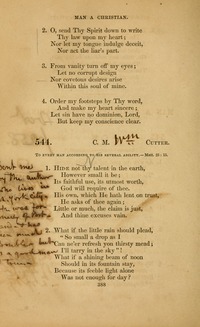 MAN A CHRISTIAN.
2. O, send Thy Spirit down to write
Thy law upon my heart;
Nor let my tongue indulge deceit,
Nor act the liar's part.
3. From vanity turn off my eyes;
Let no corrupt design
Nor covetous desires arise
Within this soul of mine.
4. Order my footsteps by Thy word,
And make my heart sincere;
Let sin have no dominion, Lord,
But keep my conscience clear.
544. C. M. CUTTER.
TO EVERY MAN ACCORDING TO HIS SEVERAL ABILITY.—Matt. 25: 15.
1. HIDE not thy talent in the earth,
However small it be;
Its faithful use, its utmost worth,
God will require of thee.
His own, which He hath lent on trust,
He asks of thee again;
Little or much, the claim is just,
And thine excuses vain.
2. What if the little rain should plead,
"So small a drop as I
Can ne'er refresh yon thirsty mead;
I'll tarry in the sky"?
What if a shining beam of noon
Should in its fountain stay,
Because its feeble light alone
Was not enough for day?